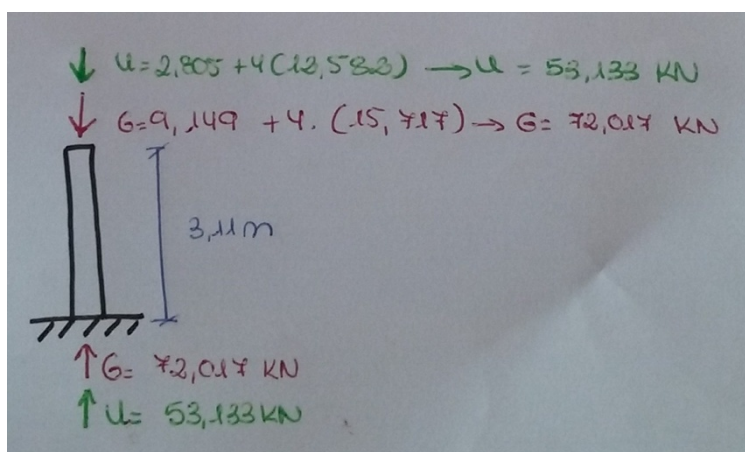 ↓ U=2,805 + 4(12,582) → U = 53,133 KN
↓ G=9,149 + 4. (15,717) → G= 72,017 KN
3,11m
↑G= 72,017 KN
↑U= 53,133KN